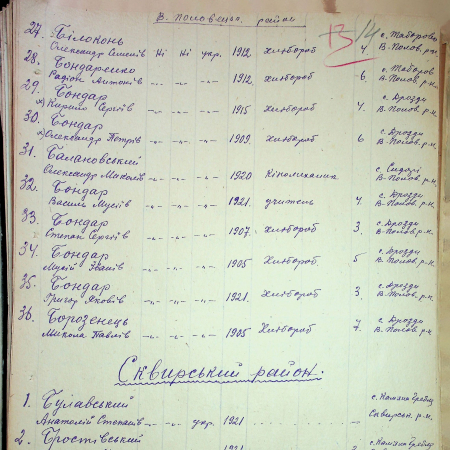 В. Половецьк. району
27. Білоконь
Олександр Семенів Ні Ні укр. 1912 хлібороб 4 с. Таборов
В-Полов. р-н.
28. Бондаренко
Радіон Антонів -"- -"- -"- 1912. хлібороб 6 с. Таборов
В. Полов. р-н.
29. Бондар
Кирило Сергіїв -"- -"- -"- 1915 хлібороб 4. с. Дрозди
В-Полов. р-н.
30. Бондар
Олександр Петрів -"- -"- -"- 1909. хлібороб 6 с. Дрозди
В-Полов. р-н.
31. Балановський
Олександр Миколів -"- -"- -"- 1920 Кіномеханик с.
В-Полов. р-н.
32. Бондар
Василь Мусіїв -"- -"- -"- 1921. учитель 4 с. Дрозди
В. Полов. р-н.
33. Бондар
Степан Сергіїв -"- -"- -"- 1907. хлібороб 3. с. Дрозди
В. Полов. р-н.
34. Бондар
Мусій Іванів -"- -"- -"- 1905 хлібороб 5 с. Дрозди
В-Полов. р-н.
35. Бондар
Григор Яковів -"- -"- -"- 1921. хлібороб 3 с. Дрозди
В. Полов. р-н.
36. Борозенець
Микола Павлів -"- -"- -"- 1905 хлібороб 7. с. Дрозди
В. Полов. р-н
Сквирський район.
1. Булавський
Анатолій Степанів -"- -"- укр. 1921 с. Камяна Гребля
Сквирськ. р-н.
2. Бростівський
с. Камяна Гребля